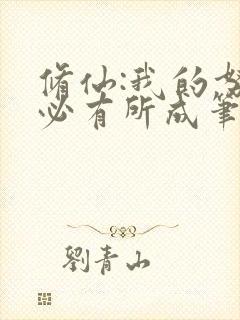 脩仙:我的努
必有所成筆
劉青山